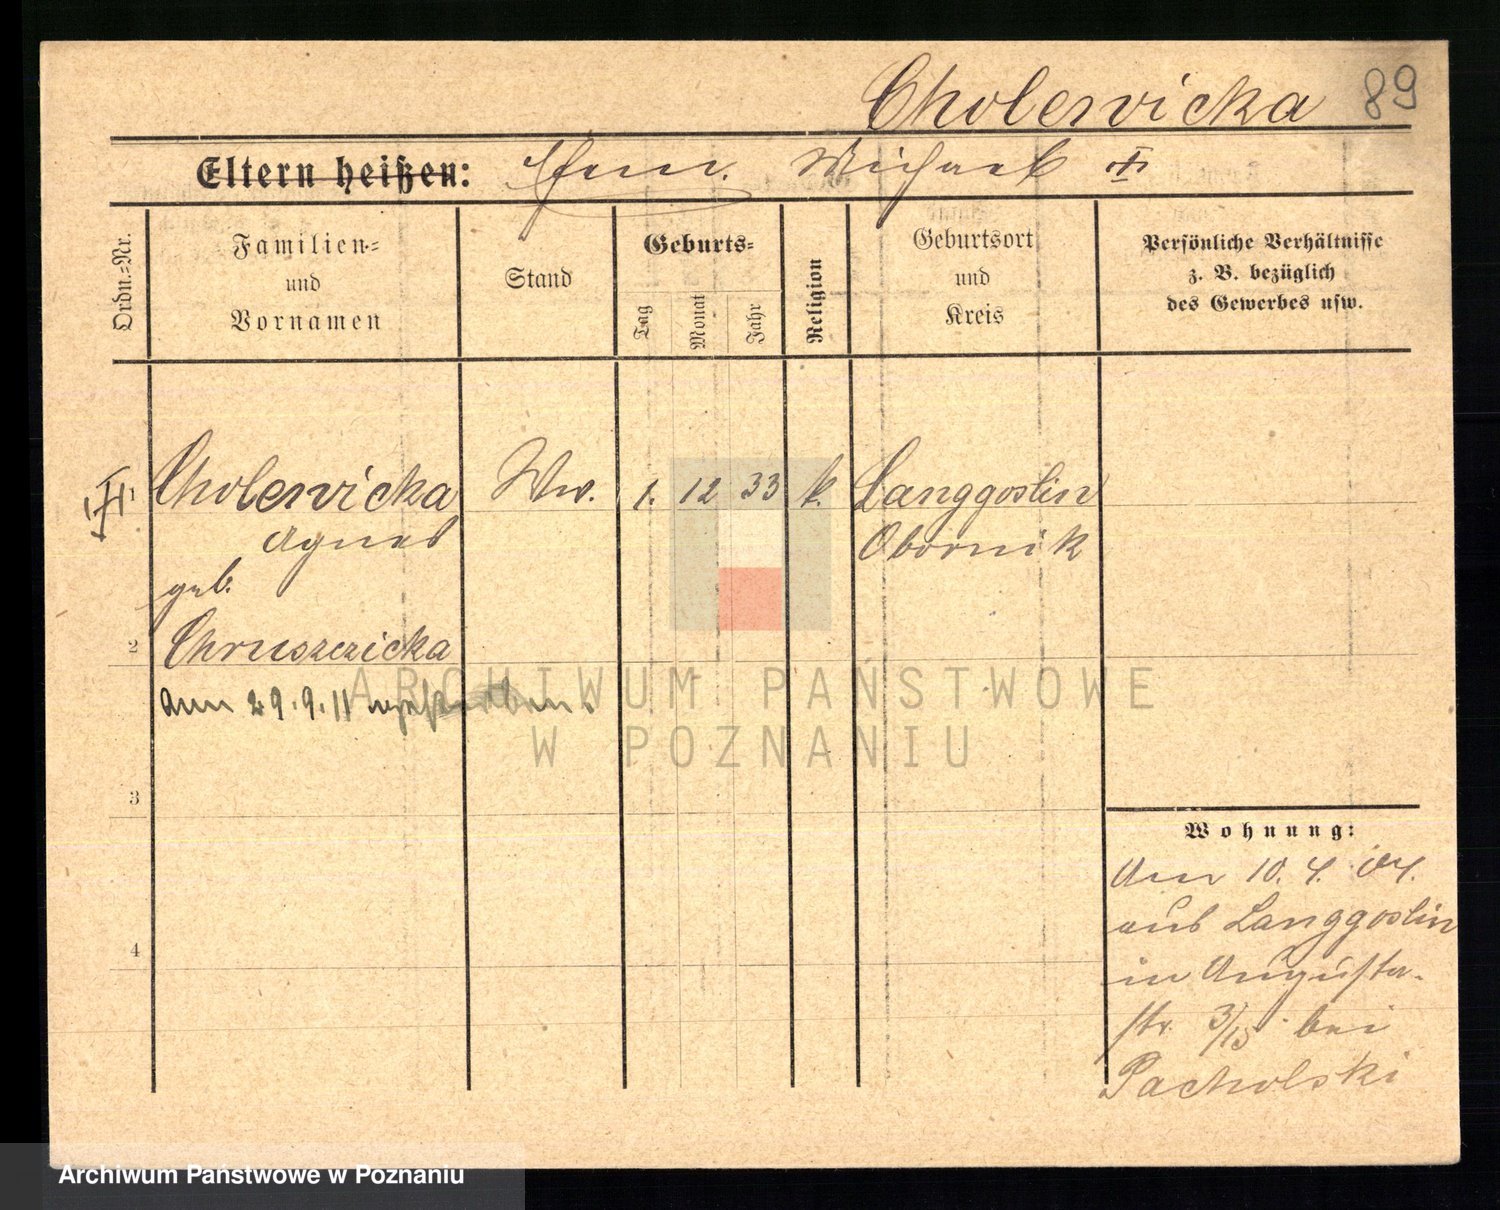 Cholewicka 89
Eltern heißen: Michael
Ordn.=Nr.
Familien=
und
Vornamen
Stand
Geburts=
Tag
Monat
Jahr
Religion
Geburtsort
und
Kreis
Persönliche Verhältnisse
z. B. bezüglich
des Gewerbes usw.
1 Cholewicka Ww. 1. 12 33 k. Langgoslin
Agnes Obornik
geb.
2 Chruszczicka
am 29.9.11 verstorben.
3
4
Wohnung:
Am 10. 4. 04.
aus Langgoslin
in Augusta-
str. 3/15 bei
Pacholski
ARCHIWUM PAŃSTWOWE
W POZNANIU
Archiwum Państwowe w Poznaniu